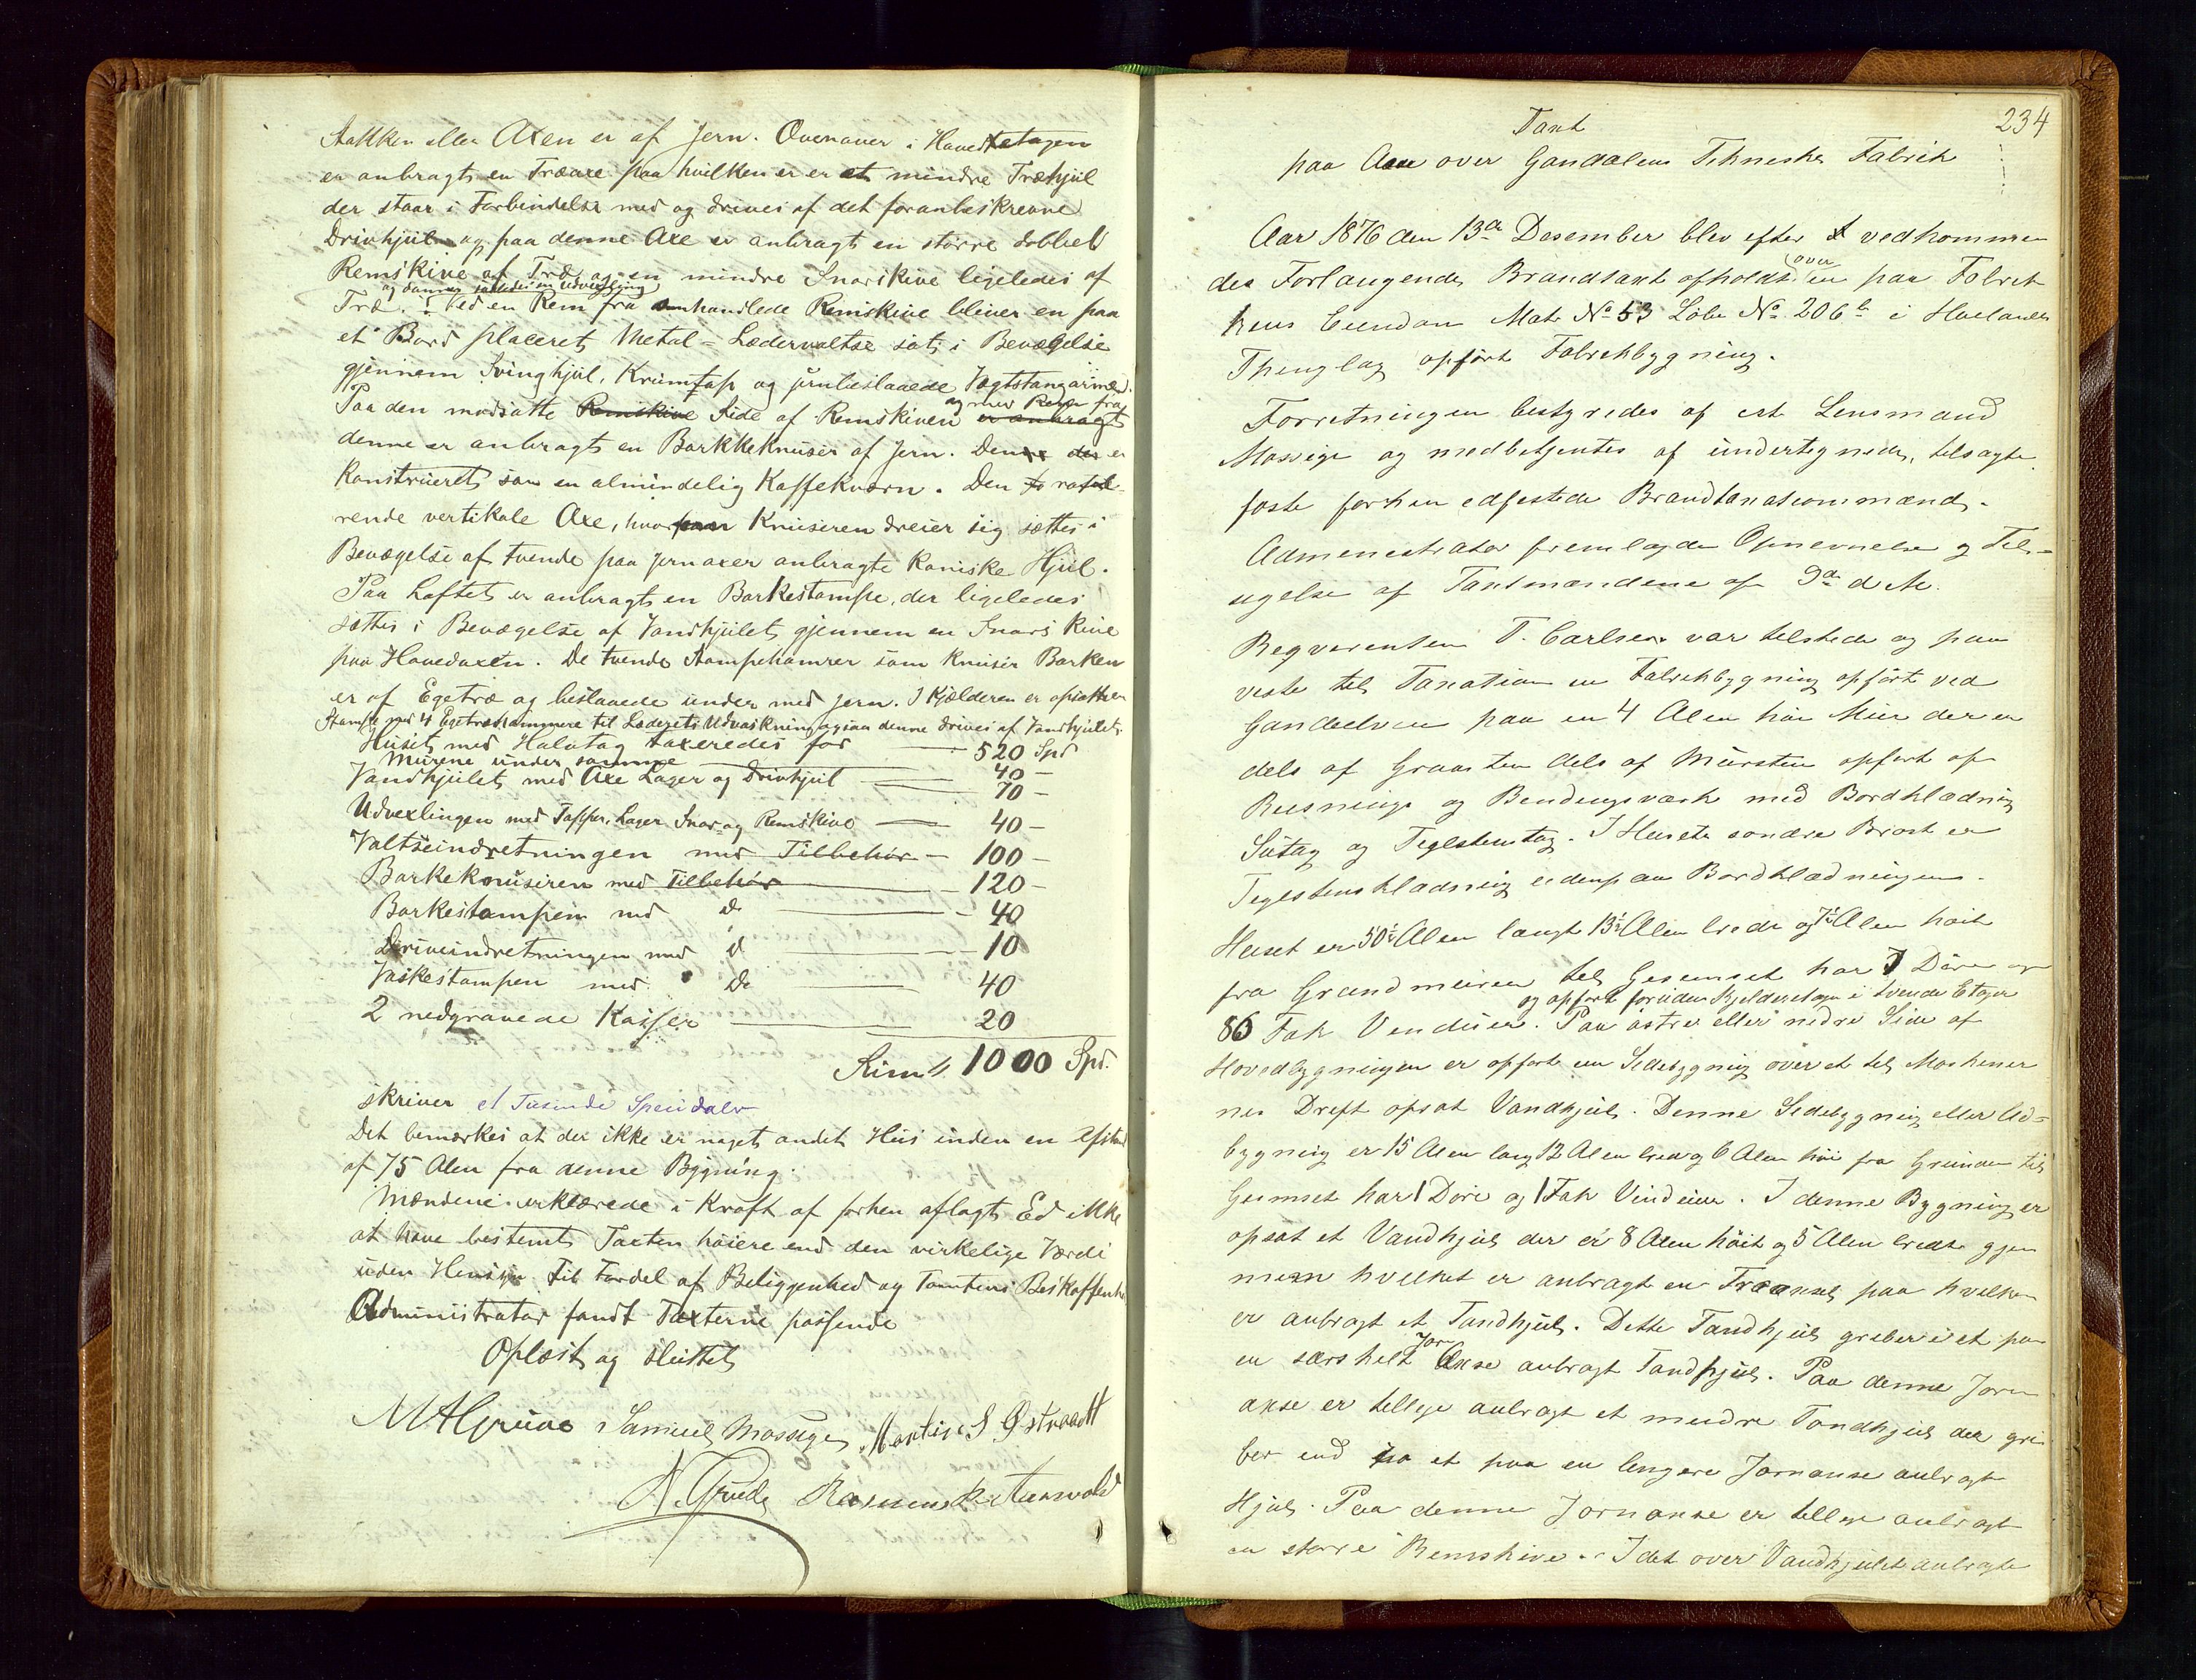 Stakken eller Axen er af Jern. Ovenover i Hovedetagen
er anbragt en Træaxe paa hvilken er et mindre Træhjul
der staar i Forbindelse med og drives af det foranbeskrevne
Drivhjul og paa denne Axe er anbragt en større dobbel
Remskive af Træ og en mindre Snorskive ligeledes af
og danner saaledes en Udvexling
Træ. Ved en Rem fra omhandlede Remskive bliver en paa
et Bord placeret Metal=Lædervaltse sat i Bevægelse
gjennem Svinghjul, Krumtap og jernbeslaaede Vægtstangarme.
og med Rem fra
Paa den modsatte Remskive Side af Remskiven er anbragt
denne er anbragt en Barkkeknuser af Jern. Denne der er
Konstrueret som en almindelig Kaffekværn. Den to rote-
rende vertikale Axe, hvorpaa Knuseren dreier sig sættes i
Bevægelse af tvende paa Jernaxer anbragte Koniske Hjul.
Paa Loftet er anbragt en Barkestampe, der ligeledes
sættes i Bevægelse af Vandhjulet gjennem en Snorskive
paa Hovedaxen. De tvende Stampehamrer som Knuser Barken
er af Egetræ og beslaaede under med Jern. I Kjælderen er opsat en
Stampe med 4 Egetræshammere til Læderets Udvaskning ogsaa denne drives af Vandhjulet.
Huset med Halvtag taxeredes for 520 Spd
Murene under samme 40 –
Vandhjulet med Axe Lager og Drivhjul 70 –
Udvexlingen med Tapper, Lager Snor= og Remskive 40 –
Valtseindretningen med Tilbehør – 100 –
Barkeknuseren med Tilbehør – 120 –
Barkestampen med do – 40
Driveindretningen med do – 10
Vaskestampen med do 40
2 nedgravede Kasser 20
Summa 1000 Spd.
skriver et Tusinde Speciedaler
Det bemærkes at der ikke er noget andet Hus inden en Afstand
af 75 Alen fra denne Bygning.
Mændene erklærede i Kraft af forhen aflagt Ed ikke
at have bestemt Taxten høiere end den virkelige Værdi
uden Hensyn til Fordel af Beliggenhed og Tomtens Beskaffenhed
Administrator fandt Taxterne passende
Oplæst og sluttet
M A Grude Samuel Mossige Martin S Østraadt
N. Grude Rasmus
234
Taxt
paa Axe over Gandalens Tekniske Fabrik
Aar 1876 den 13de Desember blev efter A vedkommen
over
des Forlangende Brandtaxt afholdt en paa Fabrik
kens Eiendom Matr No 53 Løbe No 206 b i Høilands
Thinglag opført Fabrikbygning.
Forretningen bestyredes af cst Lensmand
Mossige og medbetjentes af undertegnede, tilsagte
faste forhen edfæstede Brandtaxationsmænd.
Administrator fremlagde Opnevnelse og Til-
sigelse af Taxtmændene af 9de d M.
Reqvirenten T. Carlsen var tilstede og paa
viste til Taxation en Fabrikbygning opført ved
Gandselven paa en 4 Alen høi Mur der er
dels af Graasten dels af Mursten opført af
Reisning og Bindingsværk med Bordklædning
Sutag og Teglstenstag. I Husets søndre Brøst er
Teglstensklædning udenpaa Bordklædningen.
Huset er 50½ Alen langt 13½ Alen brede og 7½ Alen høit
fra Grundmuren til Gesimset har 7 Døre og
og opført foruden Kjelderetagen i tvende Etager
86 Fak Vinduer. Paa østre eller nedre Side af
Hovedbygningen er opført en Sidebygning over et til Maskiner
nes Drift opsat Vandhjul. Denne Sidebygning eller Ud=
bygning er 15 Alen lang 12 Alen bred og 6 Alen høi fra Grunden til
Gesimset har 1 Døre og 1 Fak Vinduer. I denne Bygning er
opsat et Vandhjul der er 8 Alen høit og 5 Alen bredt gjen
nem hvilket er anbragt en Træaxel paa hvilken
er anbragt et Tandhjul. Dette Tandhjul griber i et paa
Jern
en særskilt Akse anbragt Tandhjul. Paa denne Jern
akse er tillige anbragt et mindre Tandhjul der gri
ber ind paa et paa en lengere Jernakse anbragt
Hjul. Paa denne Jernakse er tillige anbragt
en større Remskive. I det over Vandhjulet anbragte